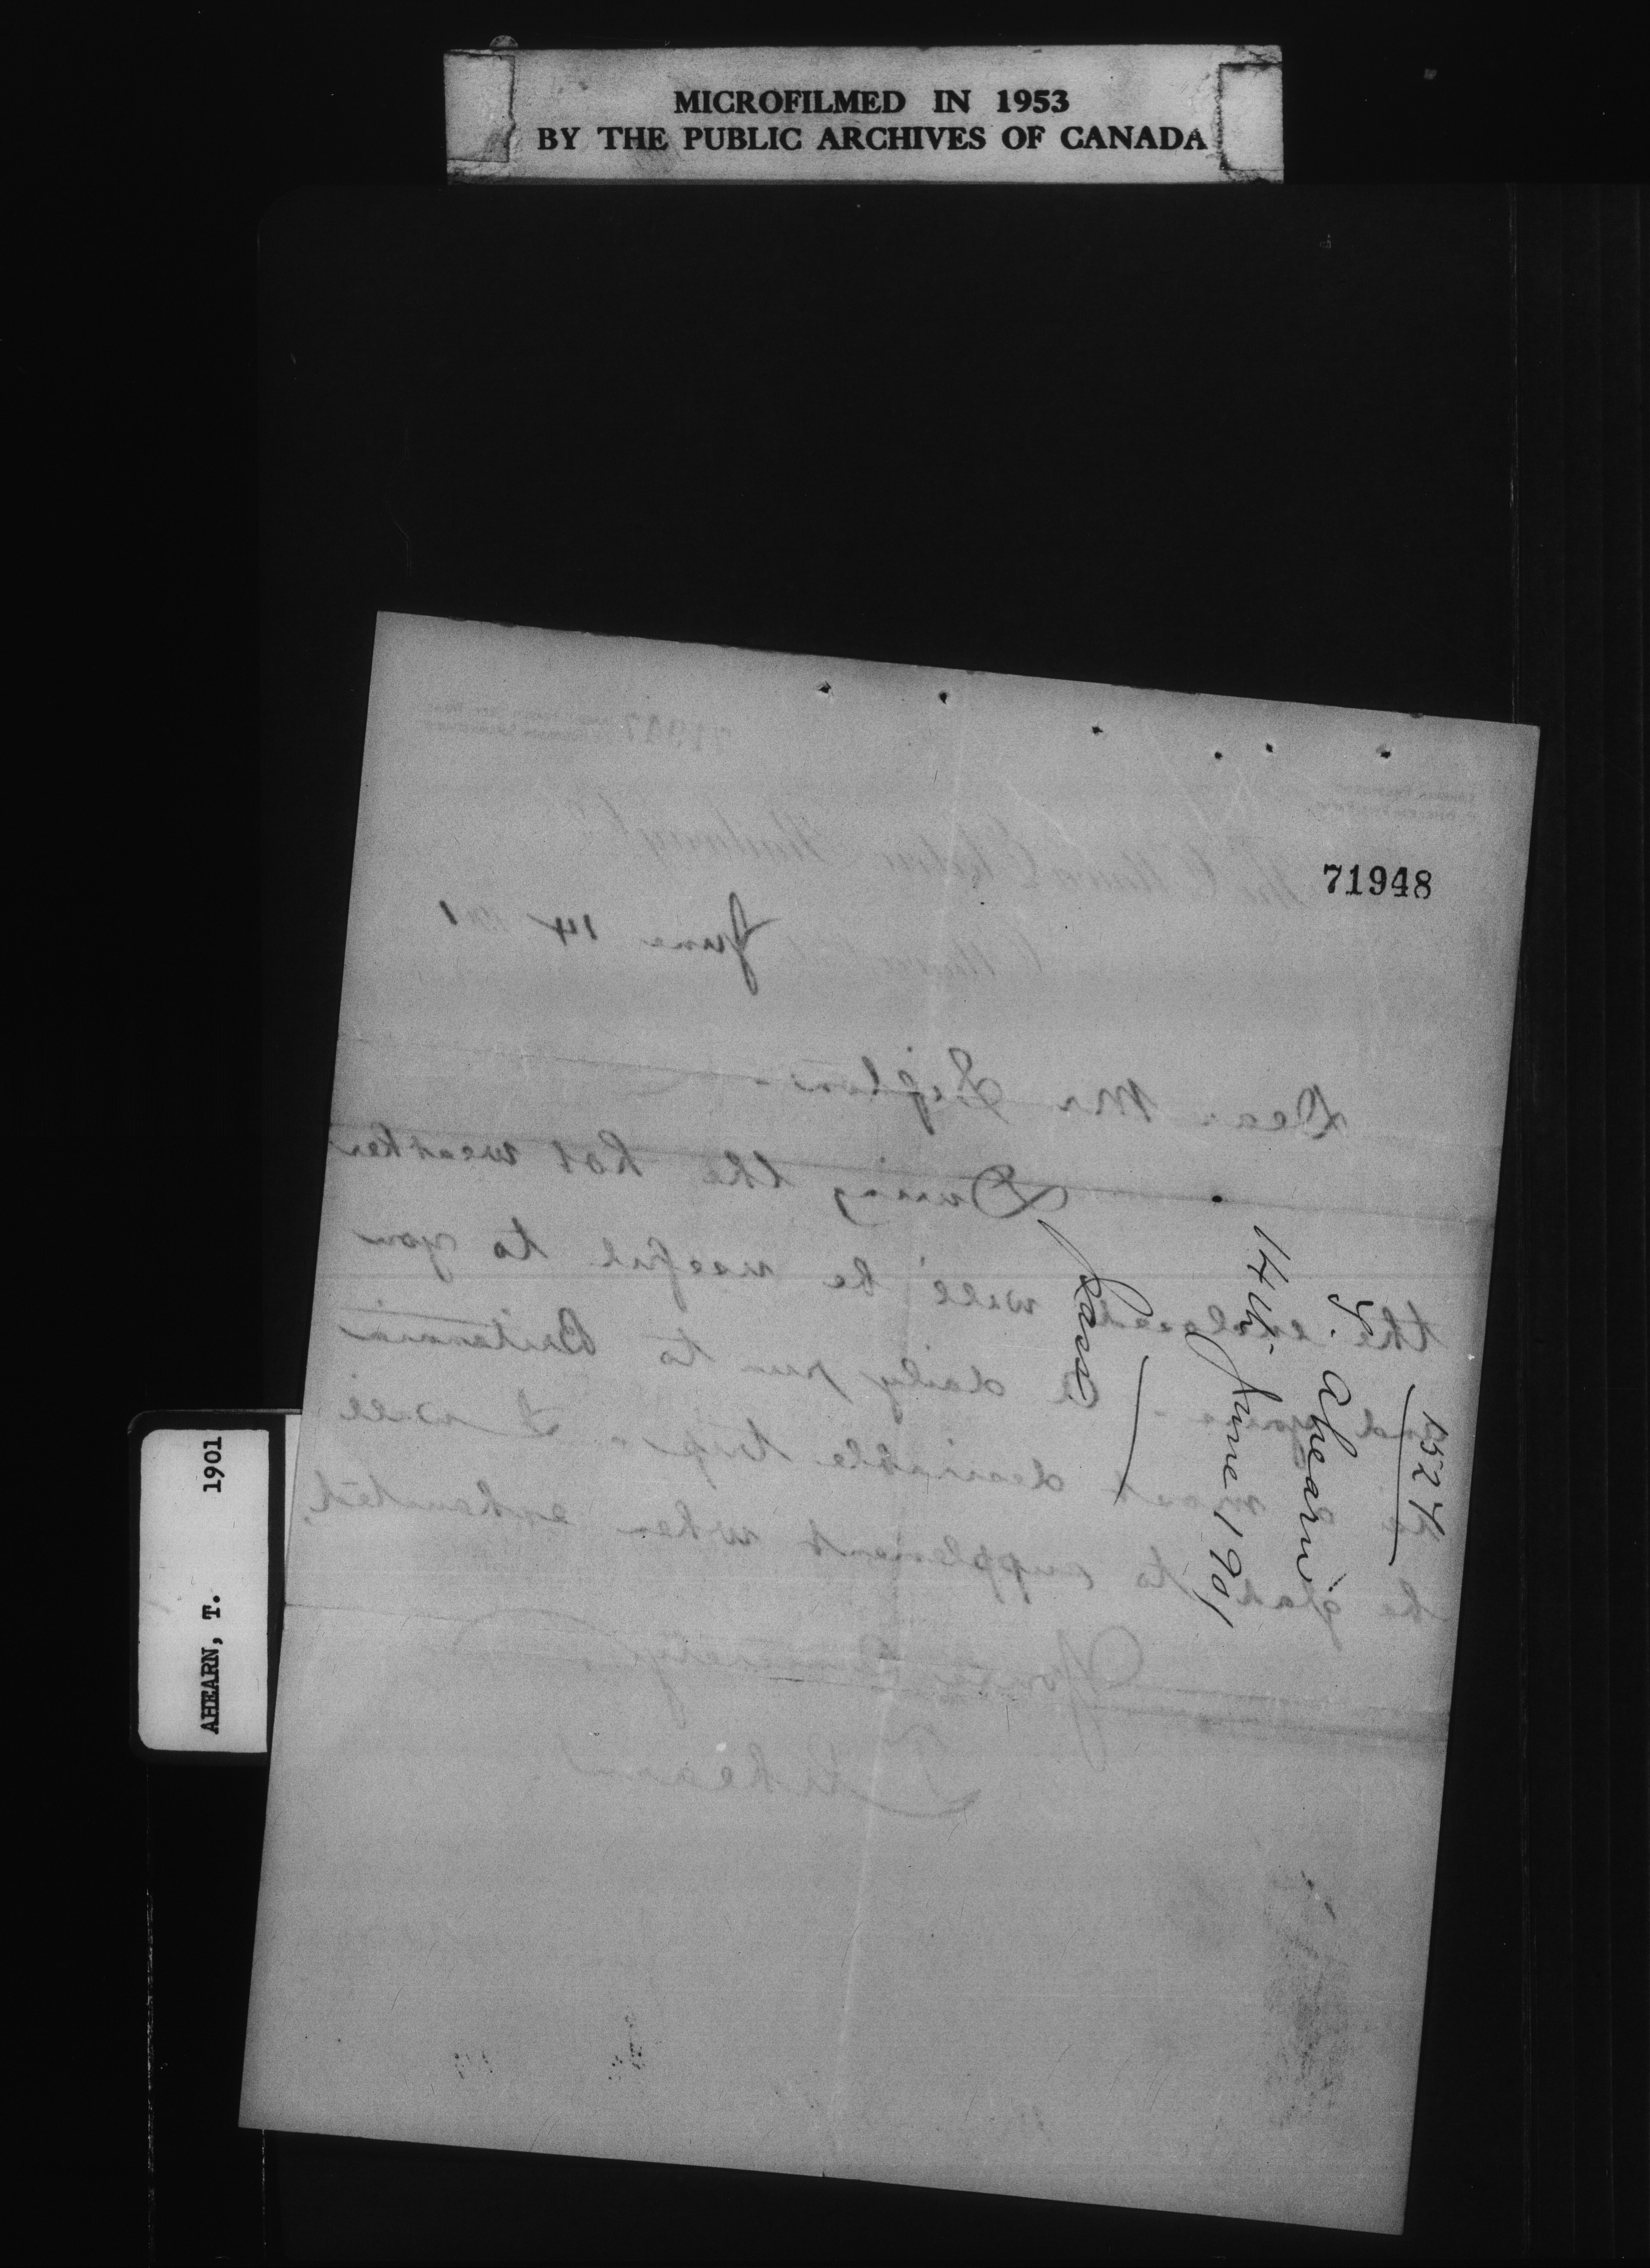 MICROFILMED IN 1953
BY THE PUBLIC ARCHIVES OF CANADA
71948
June 14 1901
Dear Mr
During the hot weather
the enclosed will be useful to you
and yours - A daily run to Britannia
is a most desirable trip - I will
be glad to supplement when exhausted,
Yours Sincerely
T Ahearn
1524
T. Ahearn
14th June 1901
Pass
AHEARN, T. 1901